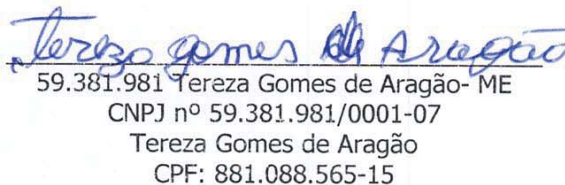 Tereza gomes de Aragão
59.381.981 Tereza Gomes de Aragão- ME
CNPJ nº 59.381.981/0001-07
Tereza Gomes de Aragão
CPF: 881.088.565-15